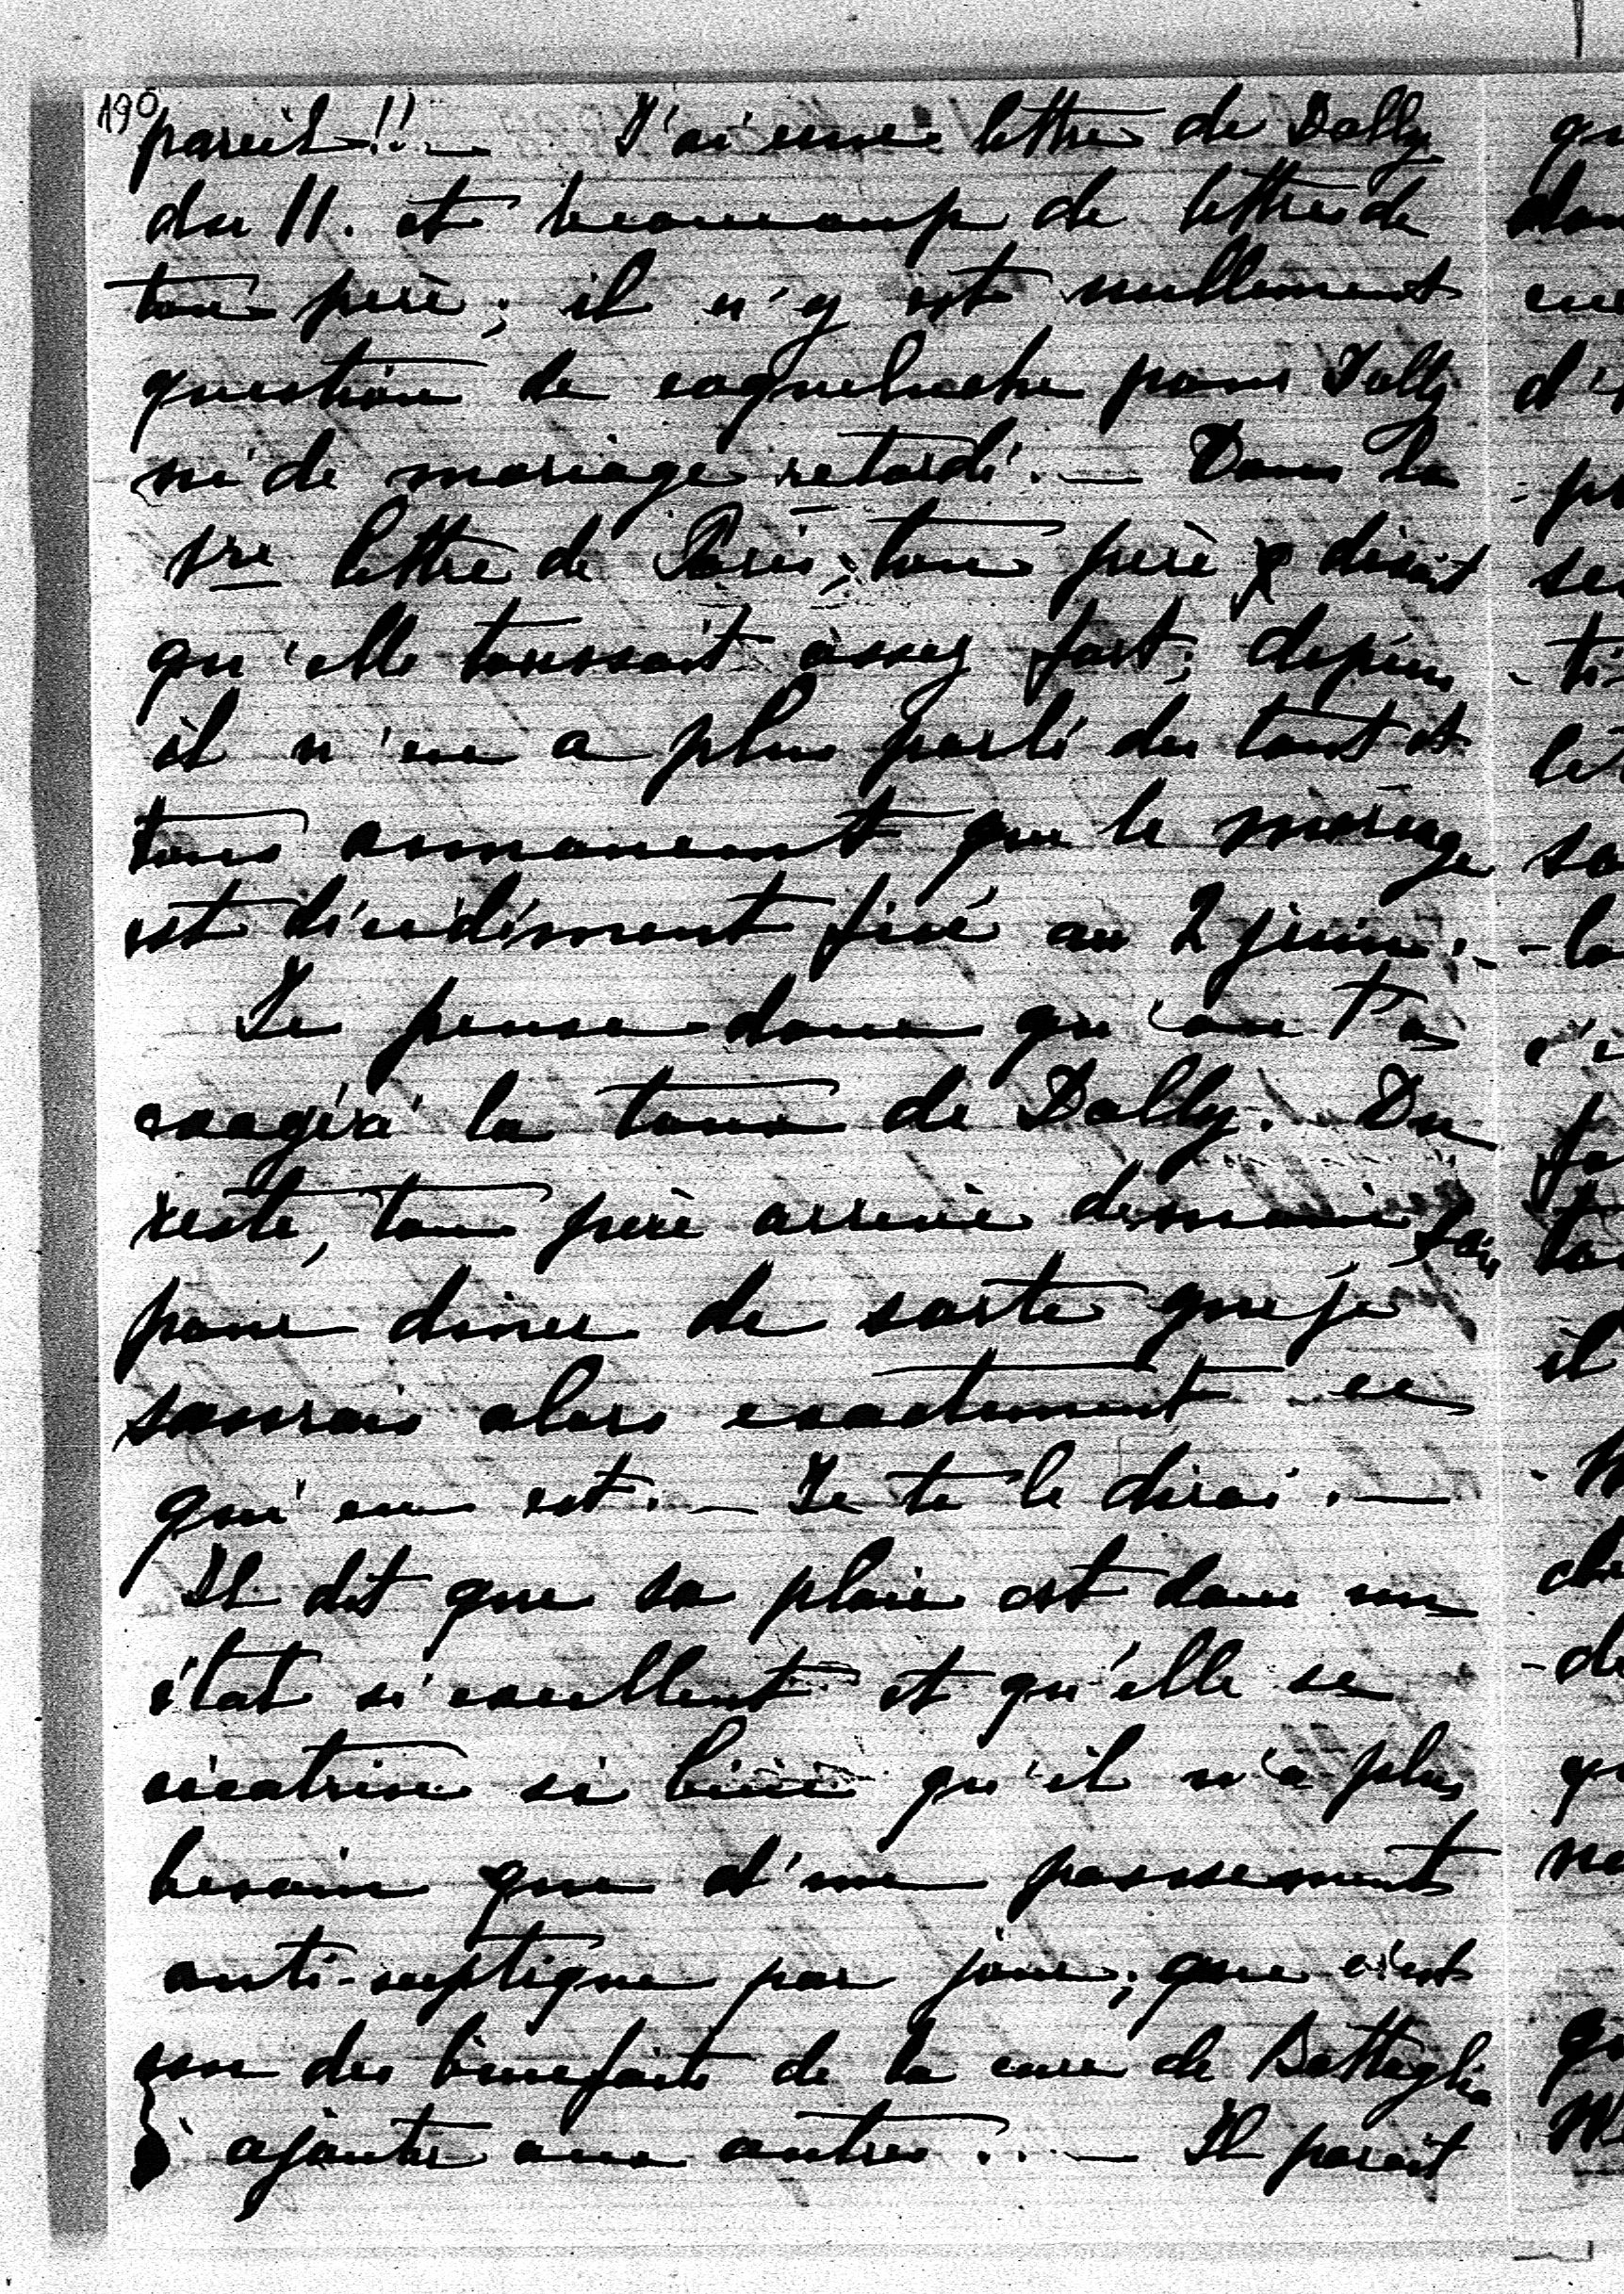 190
pareil!! — J'ai une lettre de Dolly
du 11. et beaucoup de lettres de
ton père; il n'y est nullement
question de coqueluche pour Dolly
ni de mariage retardé. — Dans la
1re lettre de Paris, ton père disait
qu'elle toussait assez fort; depuis
il n'en a plus parlé du tout et
tous annoncent que le mariage
est décidément fixé au 2 juin. —
Je pense donc qu'on t'a
exagéré la toux de Dolly. Du
reste, ton père arrive demain soir
pour diner de sorte que je
saurais alors exactement ce
qui en est. — Je te le dirai. —
Il dit que sa plaie est dans un
état si excellent et qu'elle se
cicatrise si bien qu'il n'a plus
besoin que d'un pansement
anti-septique par jour; que c'est
un des bienfaits de la cure de Battaglia
à ajouter aux autres. . — Il parait